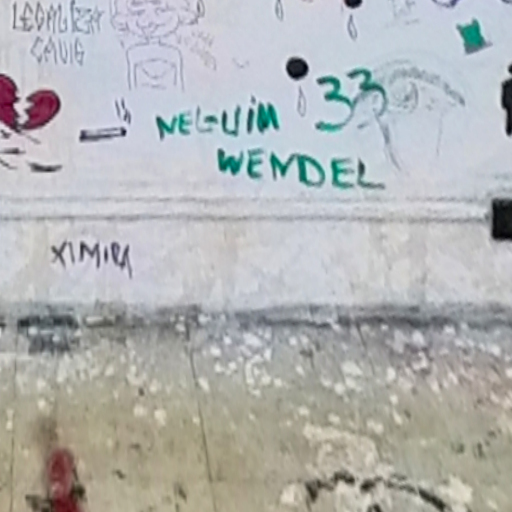 LEGALIZA
NEGUIM 33
WENDEL
XIMIRA